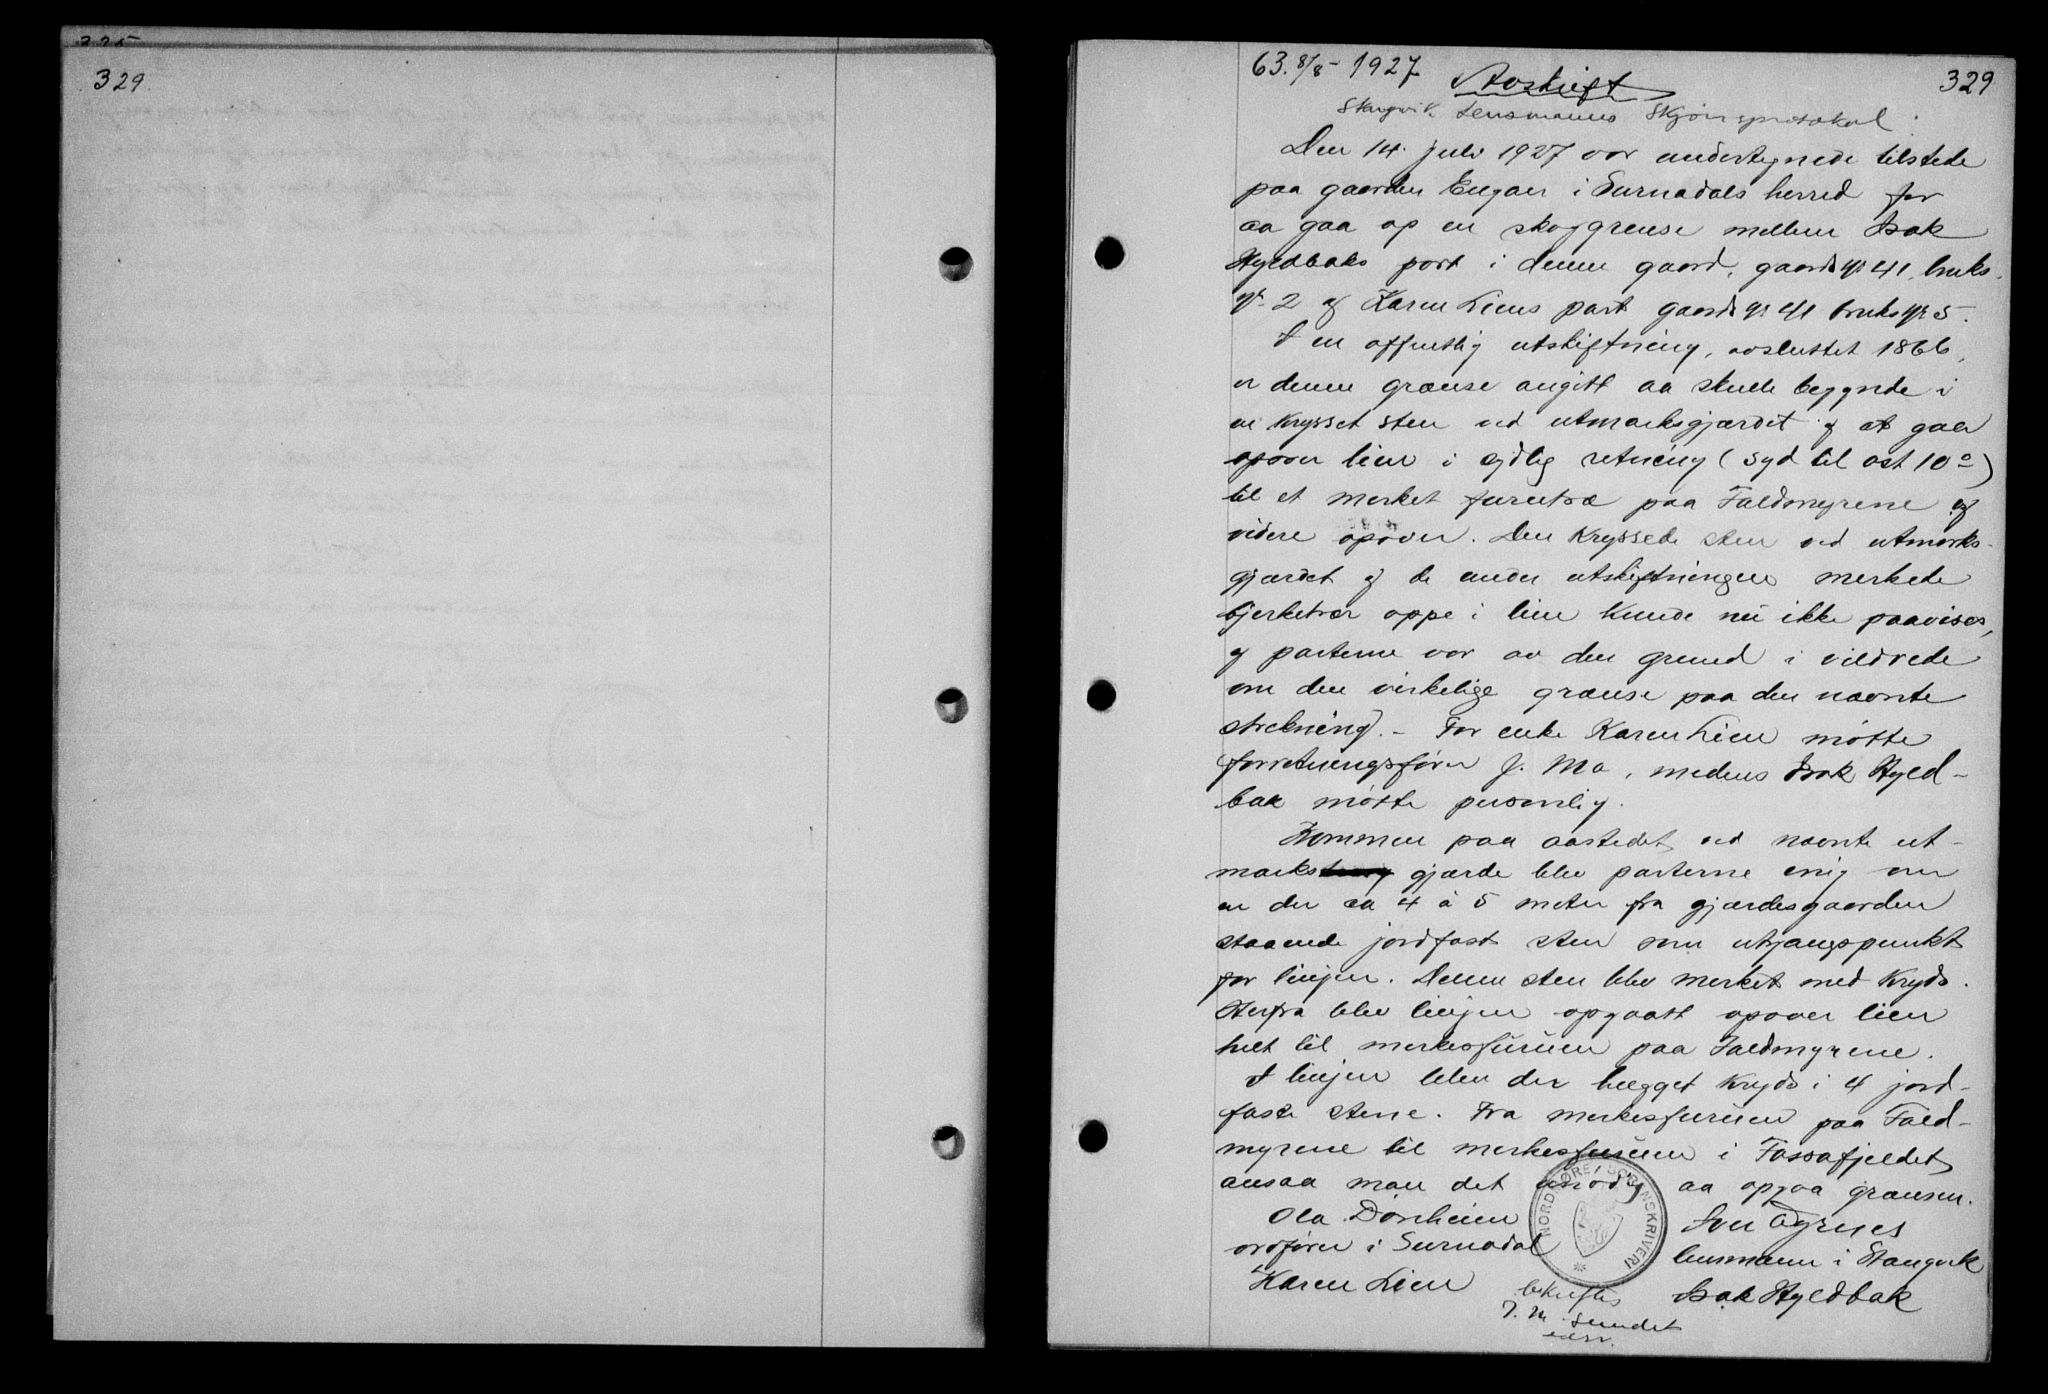 329.
63. 8/8 - 1927
329
Avskrift
Stangvik Lensmanns Skjönsprotokol.
Den 14. juli 1927 var undertegnede tilstede
paa gaarden Engan i Surnadals herred for
aa gaa op en skoggrense mellem Isak
Hyldbaks part i denne gaard, gaards nr 41, bruks
nr 2 og Karen Liens part gaards nr 41 bruks nr 5.
I en offentlig utskiftning, avsluttet 1866,
er denne grænse angitt aa skulle begynde i
en krysset sten ved utmarksgjærdet og at gaa
opover lien i sydlig retning (syd til øst 10°)
til et merket furutræ paa Faldmyrene og
videre opover. Den kryssede sten ved utmarks-
gjærdet og de under utskiftningen merkede
bjerketrær oppe i lien kunde nu ikke paavises,
og parterne var av den grund i vildrede
om den virkelige grænse paa den nævnte
strekning. - For enke Karen Lien møtte
forretningsfører J. Mo, medens Isak Hyld-
bak møtte personlig.
Kommen paa aastedet ved nævnte ut-
marks gjærde blev parterne enig om
en der ca 4 à 5 meter fra gjærdesgaarden
staaende jordfast sten som utgangspunkt
for linjen. Denne sten blev merket med kryds.
Herfra blev linjen opgaatt opover lien
helt til merkesfuruen paa Faldmyrene.
I linjen blev der hugget kryds i 4 jord-
faste stene. Fra merkesfuruen paa Fald-
myrene til merkesfuruen i Fossafjeldet
ansaa man det unødig aa opgaa grænsen.
Ola Dønheim
ordfører i Surnadal
Karen Lien
NORDMØRE SORENSKRIVERI
lensmann i Stangvik
Isak Hyldbak
bekreftes
J. M. Sundet
edsv.